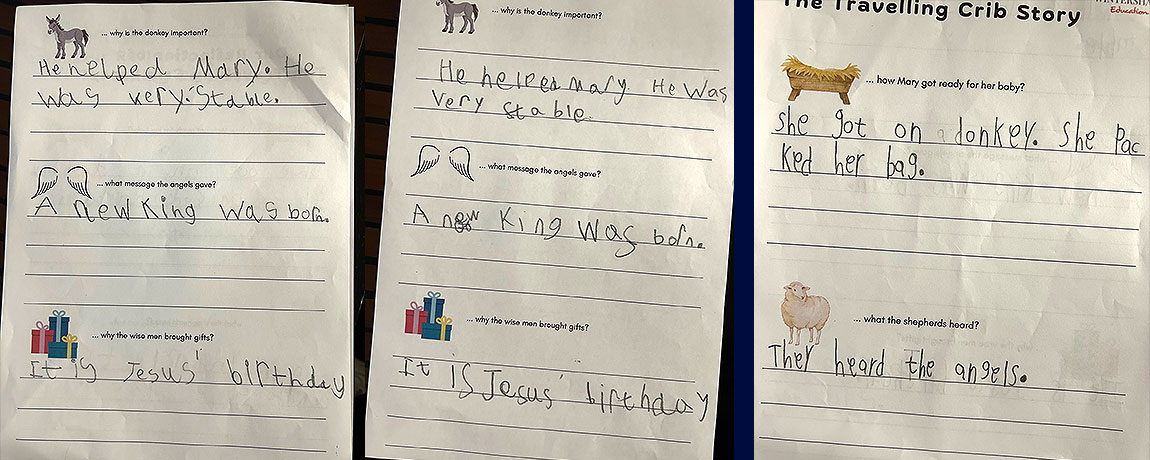 ... why is the donkey important?
He helped Mary. He
was very. stable.
... what message the angels gave?
A new King was born.
... why the wise men brought gifts?
It is Jesus' birthday
... why is the donkey important?
He helped Mary. He was
very stable.
... what message the angels gave?
A new King was born.
... why the wise men brought gifts?
It is Jesus' birthday
The Travelling Crib Story
Education
... how Mary got ready for her baby?
She got on a donkey. She pac
ked her bag.
... what the shepherds heard?
They heard the angels.